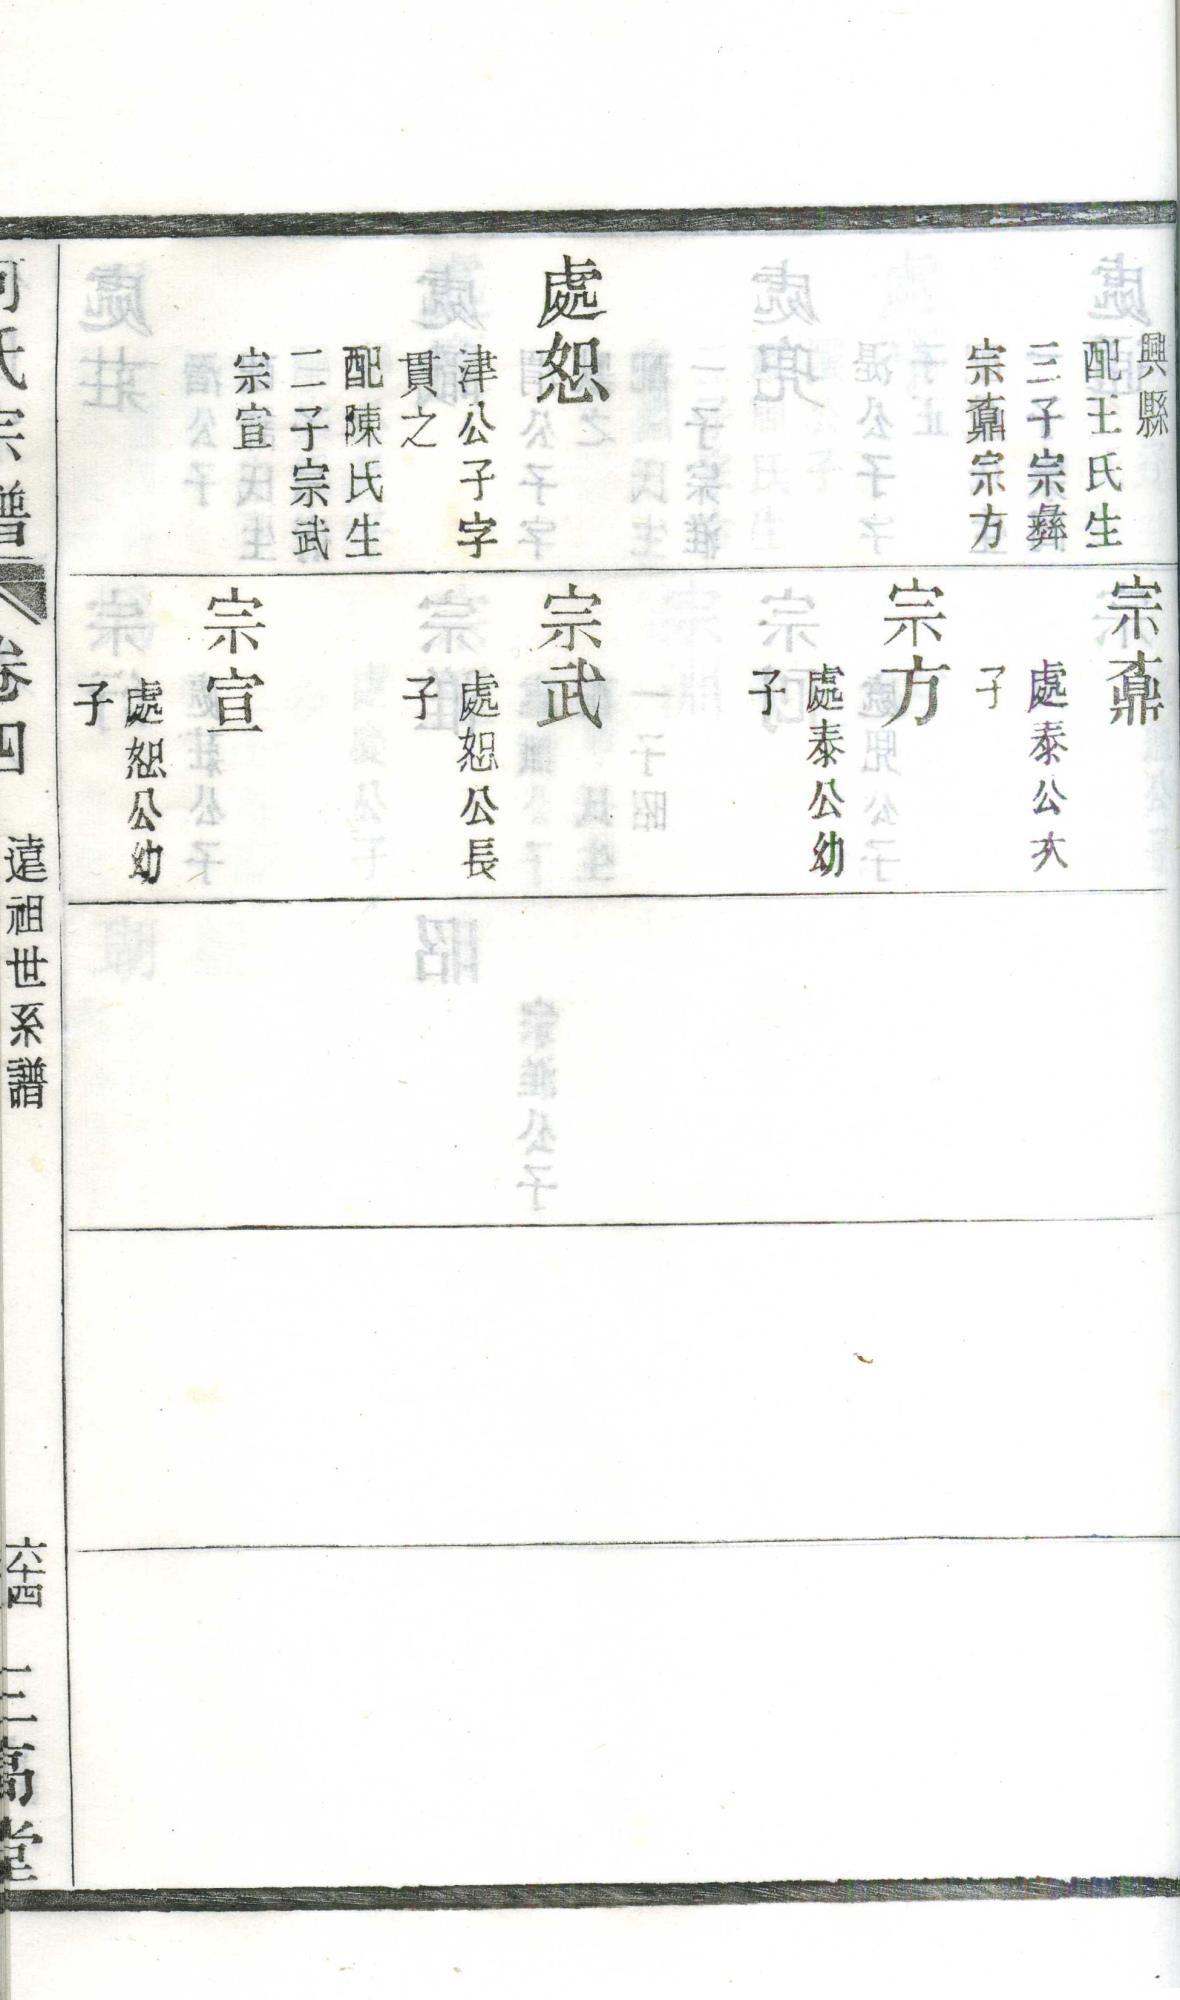 興縣
配王氏生
三子宗彝
宗鼐宗方
處恕
津公子字
貫之
配陳氏生
二子宗武
宗宣
宗鼐
處泰公次
子
宗方
處泰公幼
子
宗武
處恕公長
子
宗宣
處恕公幼
子
何氏宗譜
卷四
遠祖世系譜
六十四
三高堂